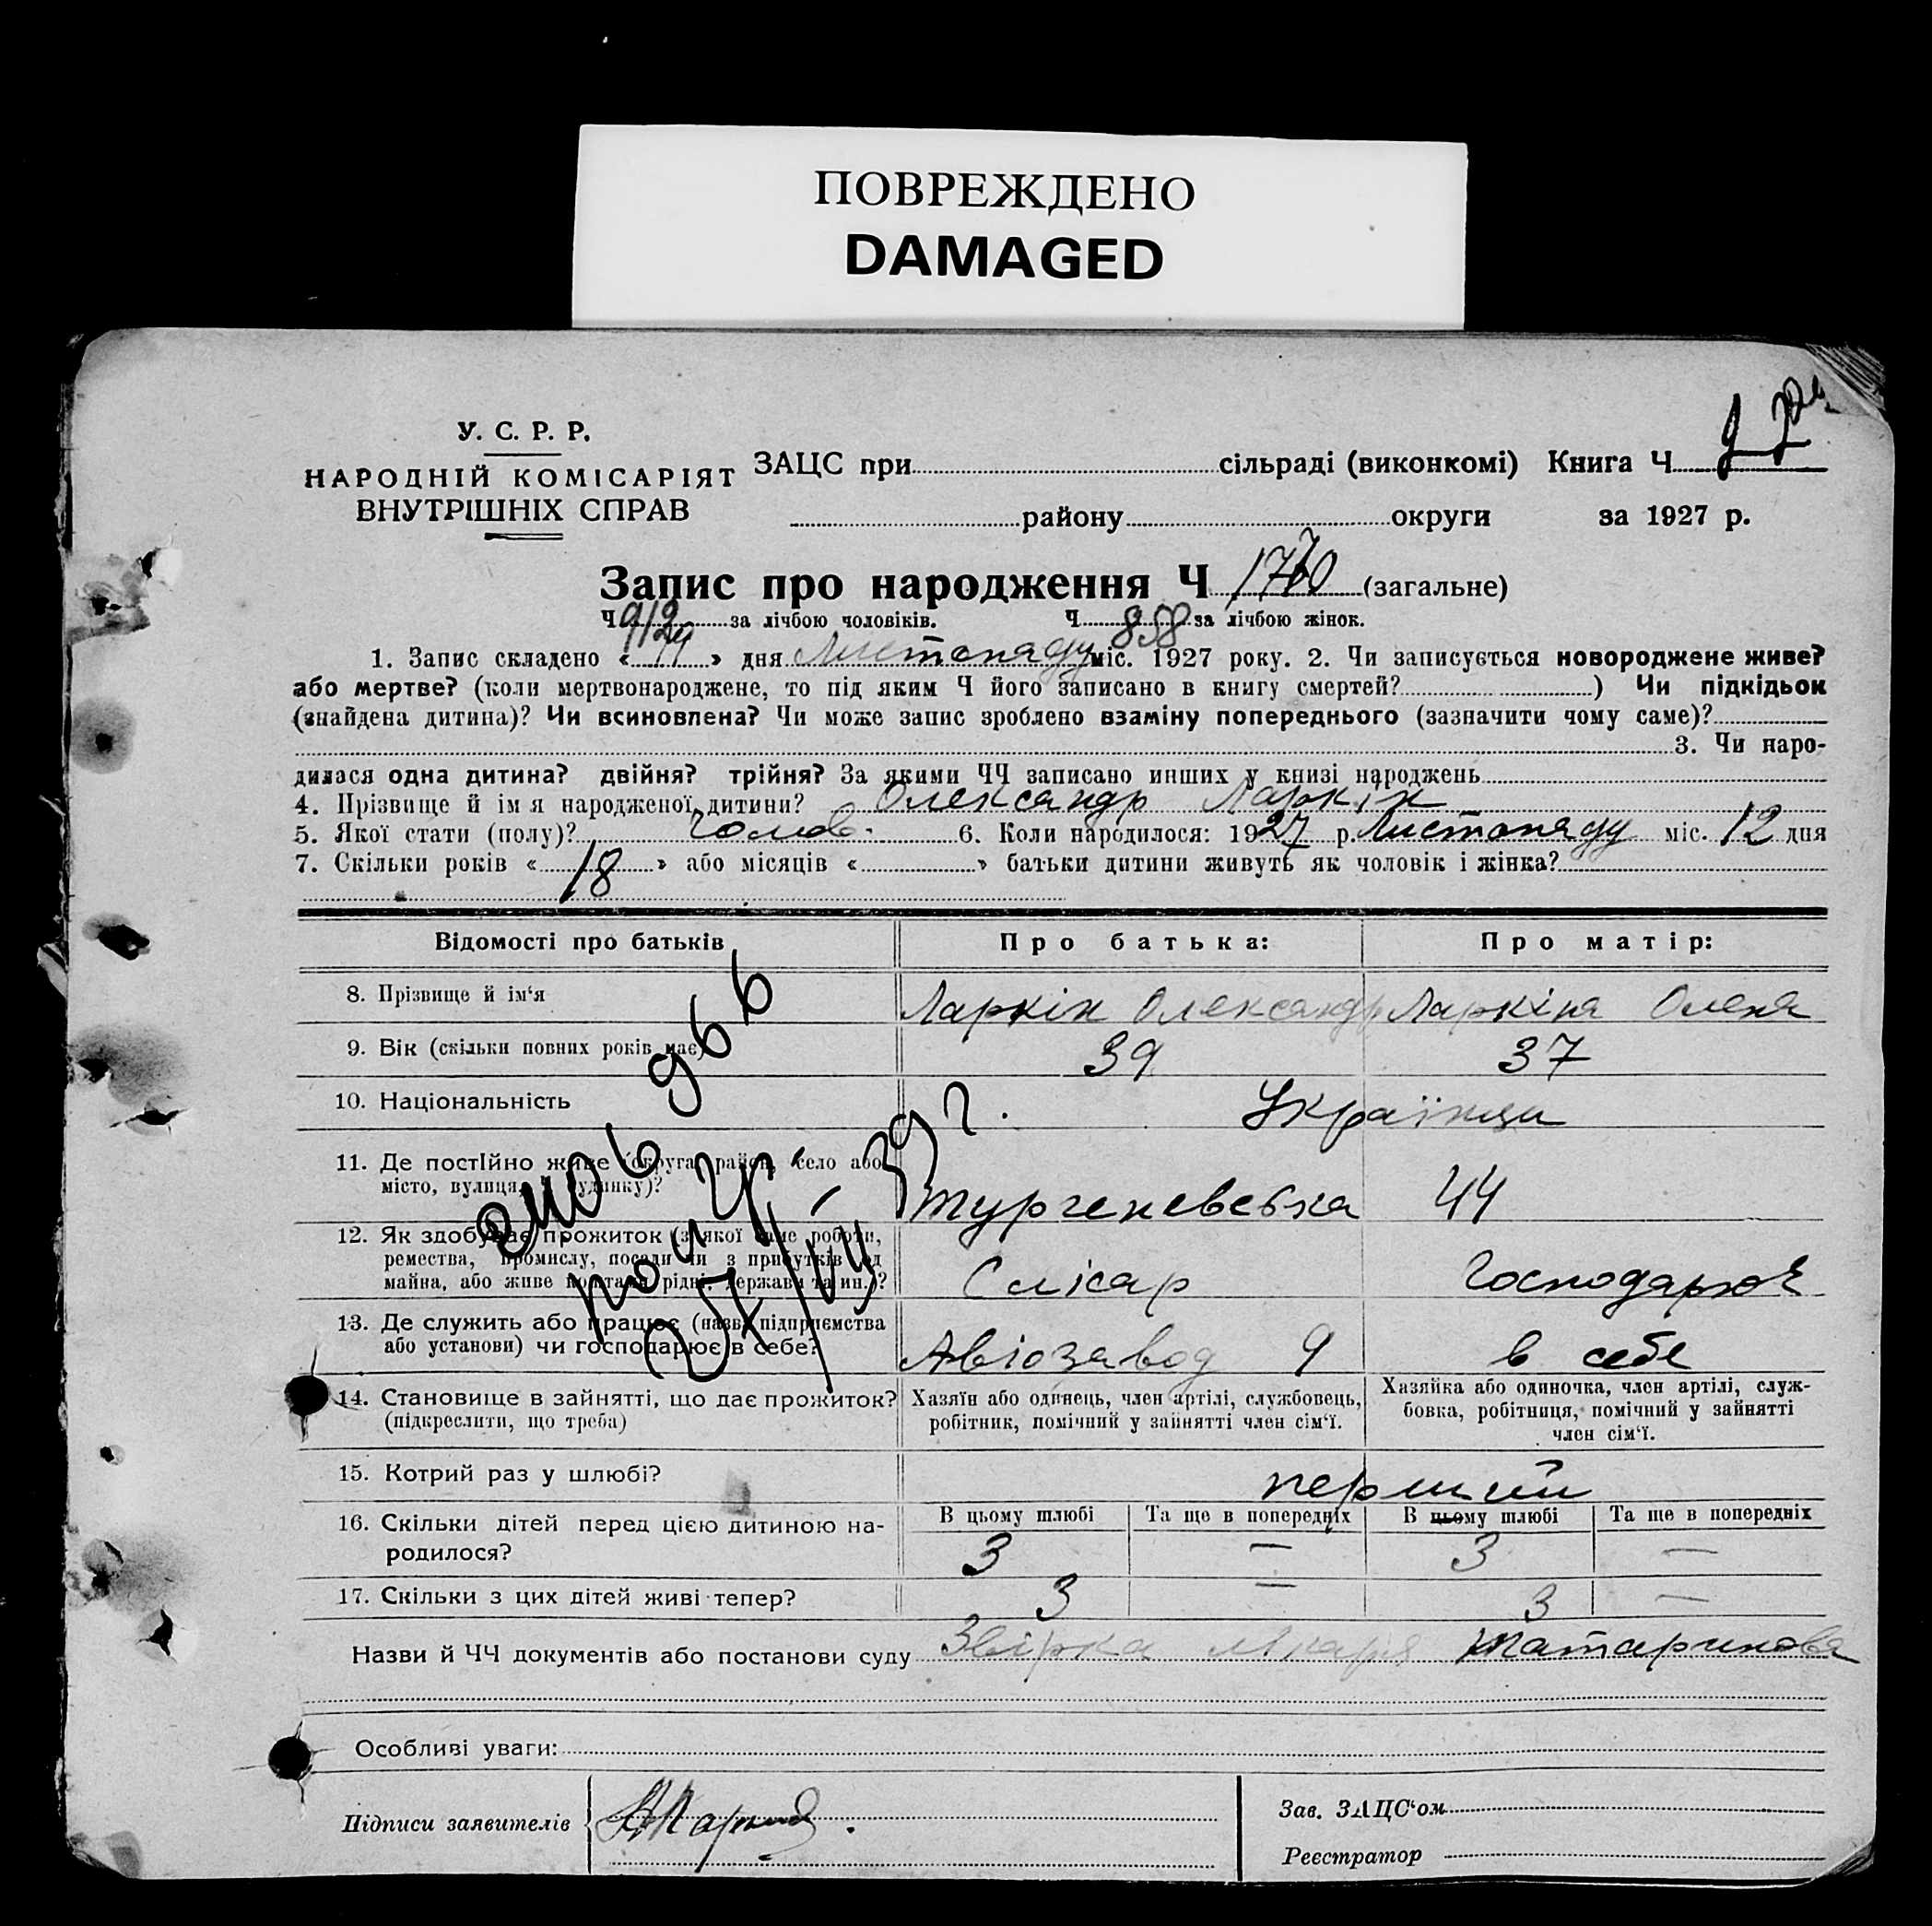 ПОВРЕЖДЕНО
DAMAGED
У. С. Р. Р.
НАРОДНІЙ КОМІСАРІЯТ
ВНУТРІШНІХ СПРАВ
ЗАЦС при сільраді (виконкомі) Книга Ч
району округи за 1927 р.
Запис про народження Ч 1770 (загальне)
Ч 912 за лічбою чоловіків. Ч 858 за лічбою жінок.
1. Запис складено « » дня Листопаду міс. 1927 року. 2. Чи записується новороджене живе?
або мертве? (коли мертвонароджене, то під яким Ч його записано в книгу смертей? ) Чи підкідьок
(знайдена дитина)? Чи всиновлена? Чи може запис зроблено взаміну попереднього (зазначити чому саме)?
3. Чи наро-
дилася одна дитина? двійня? трійня? За якими ЧЧ записано инших у книзі народжень
4. Прізвище й імя народженої дитини? Олександр Ларкін
5. Якої стати (полу)? чолов. 6. Коли народилося: 1927 р. Листопаду міс. 12 дня
7. Скільки років « 18 » або місяців « » батьки дитини живуть як чоловік і жінка?
Відомості про батьків Про батька: Про матір:
8. Прізвище й ім'я Ларкін Олександр Ларкіна Олена
9. Вік (скільки повних років має) 39 37
10. Національність Українци
11. Де постійно живе (округа, район, село або
місто, вулиця, будинку)? Тургеневська 44
12. Як здобуває прожиток (з якої саме роботи,
ремества, промислу, посади чи з прибутків од
майна, або живе коштами рідні, держави та ин.)? Слісар Господарює
13. Де служить або працює (назва підприємства
або установи) чи господарює в себе? Авіозавод 9 в себе
14. Становище в зайнятті, що дає прожиток?
(підкреслити, що треба)
Хазяїн або одинець, член артілі, службовець,
робітник, помічний у зайнятті член сім'ї.
Хазяйка або одиночка, член артілі, служ-
бовка, робітниця, помічний у зайнятті
член сім'ї.
15. Котрий раз у шлюбі? перший
16. Скільки дітей перед цією дитиною на-
родилося?
В цьому шлюбі Та ще в попередніх В цьому шлюбі Та ще в попередніх
3 — 3 —
17. Скільки з цих дітей живі тепер? 3 — 3 —
Назви й ЧЧ документів або постанови суду Звірка лікаря Татаринова
Особливі уваги:
Підписи заявителів
Зав. ЗАЦС'ом
Реєстратор